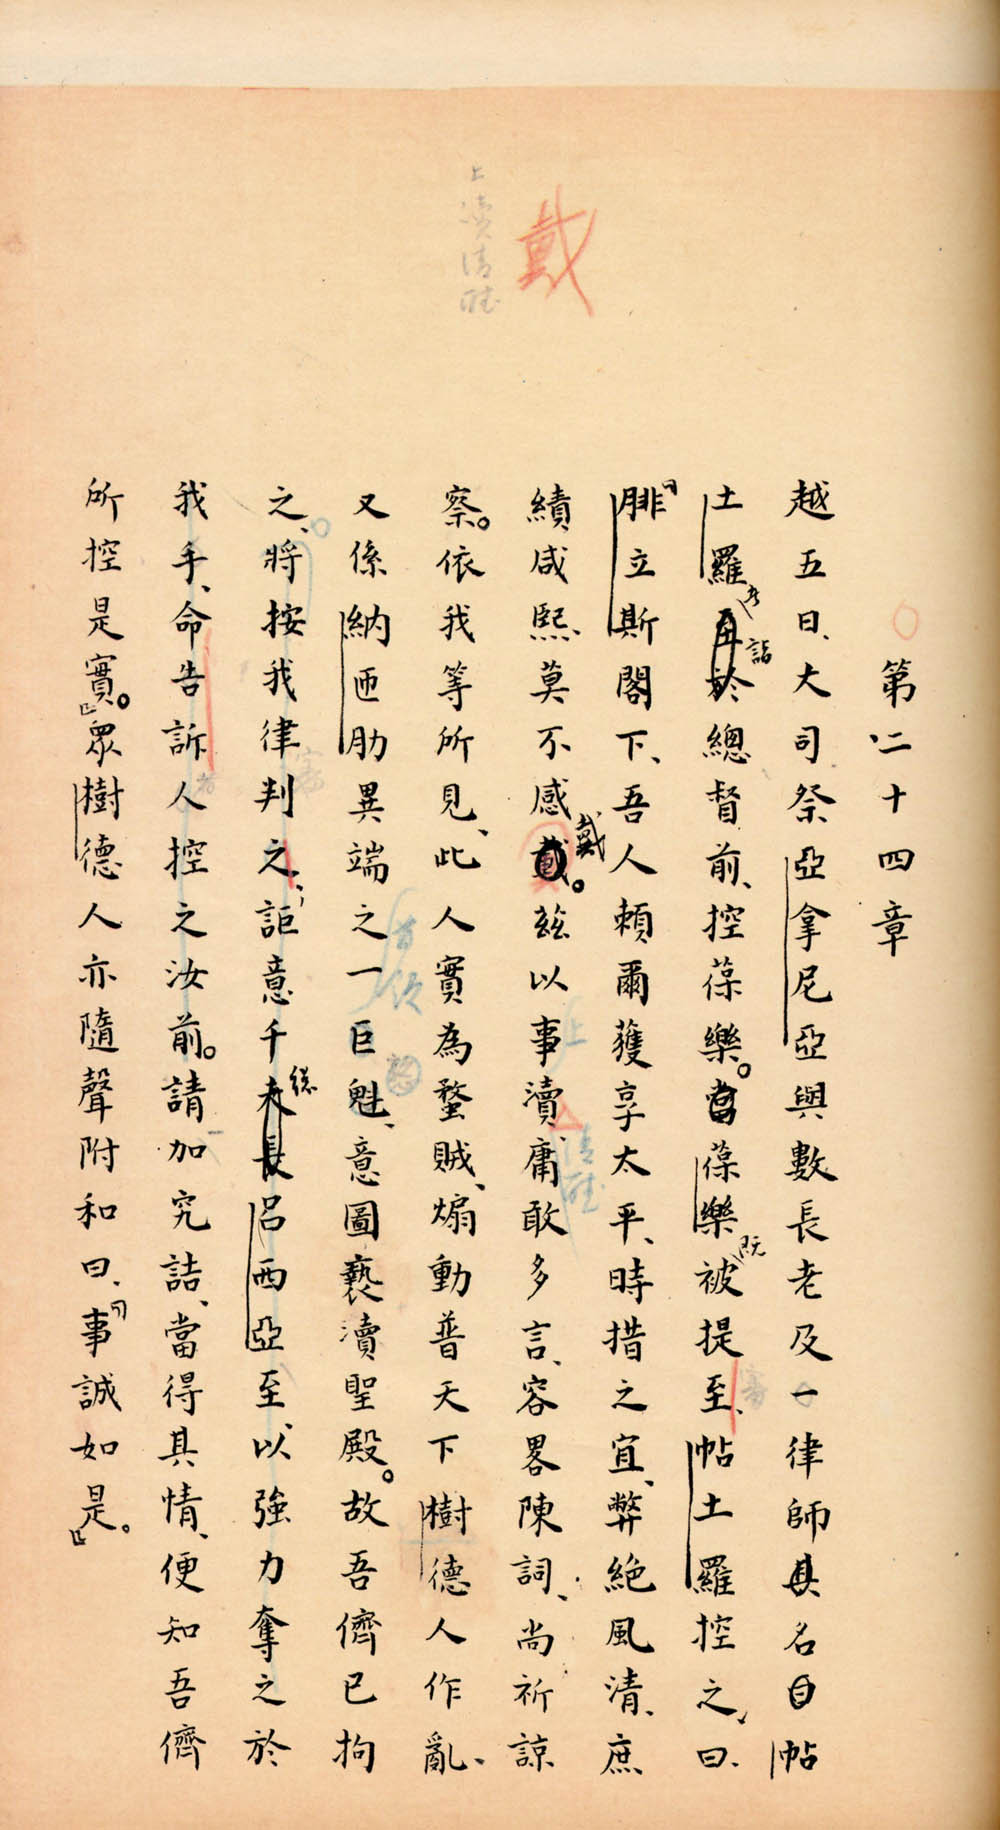 第二十四章
越五日、大司祭亞拿尼亞與數長老及一律師其名曰帖
土羅者詣於總督前、控葆樂。葆樂既被提至、帖土羅控之、曰、
「腓立斯閣下、吾人賴爾獲享太平、時措之宜、弊絕風清、庶
績咸熙、莫不感戴。茲以事瀆、庸敢多言、容畧陳詞、尚祈諒
察。依我等所見、此人實為蝥賊、煽動普天下樹德人作亂、
又係納匝肋異端之一巨魁、意圖褻瀆聖殿。故吾儕已拘
之、將按我律判之、詎意千總呂西亞至、以強力奪之於
我手、命告訴人控之汝前。請加究詰、當得其情、便知吾儕
所控是實。」眾樹德人亦隨聲附和曰、「事誠如是。」
戴
上瀆清聽
審
審
者
首領
上
清聽